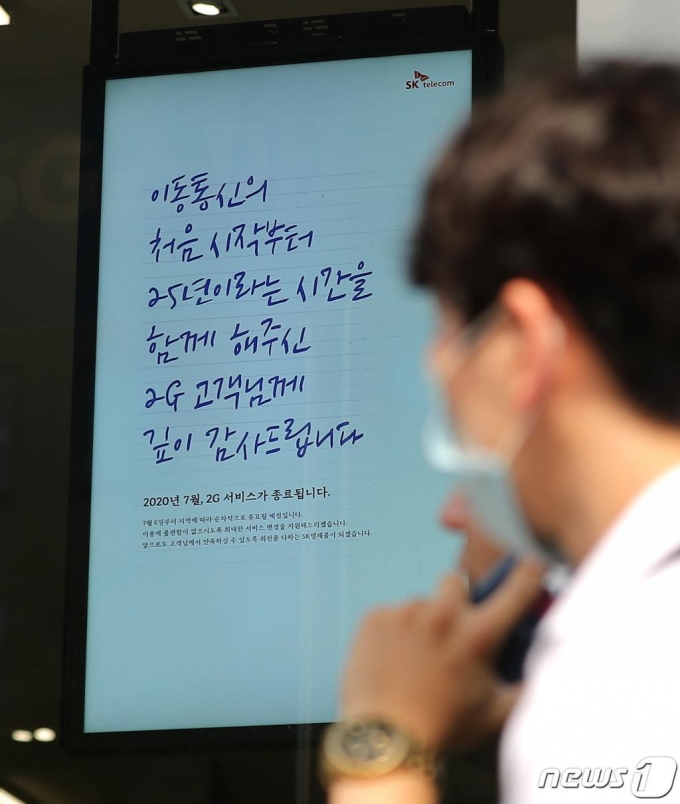 SK telecom
이동통신의
처음 시작부터
25년이라는 시간을
함께 해주신
2G 고객님께
깊이 감사드립니다
2020년 7월, 2G 서비스가 종료됩니다.
7월 6일부터 지역에 따라 순차적으로 종료될 예정입니다.
이용에 불편함이 없으시도록 최대한 서비스 변경을 지원해드리겠습니다.
앞으로도 고객님께서 만족하실 수 있도록 최선을 다하는 SK텔레콤이 되겠습니다.
news1